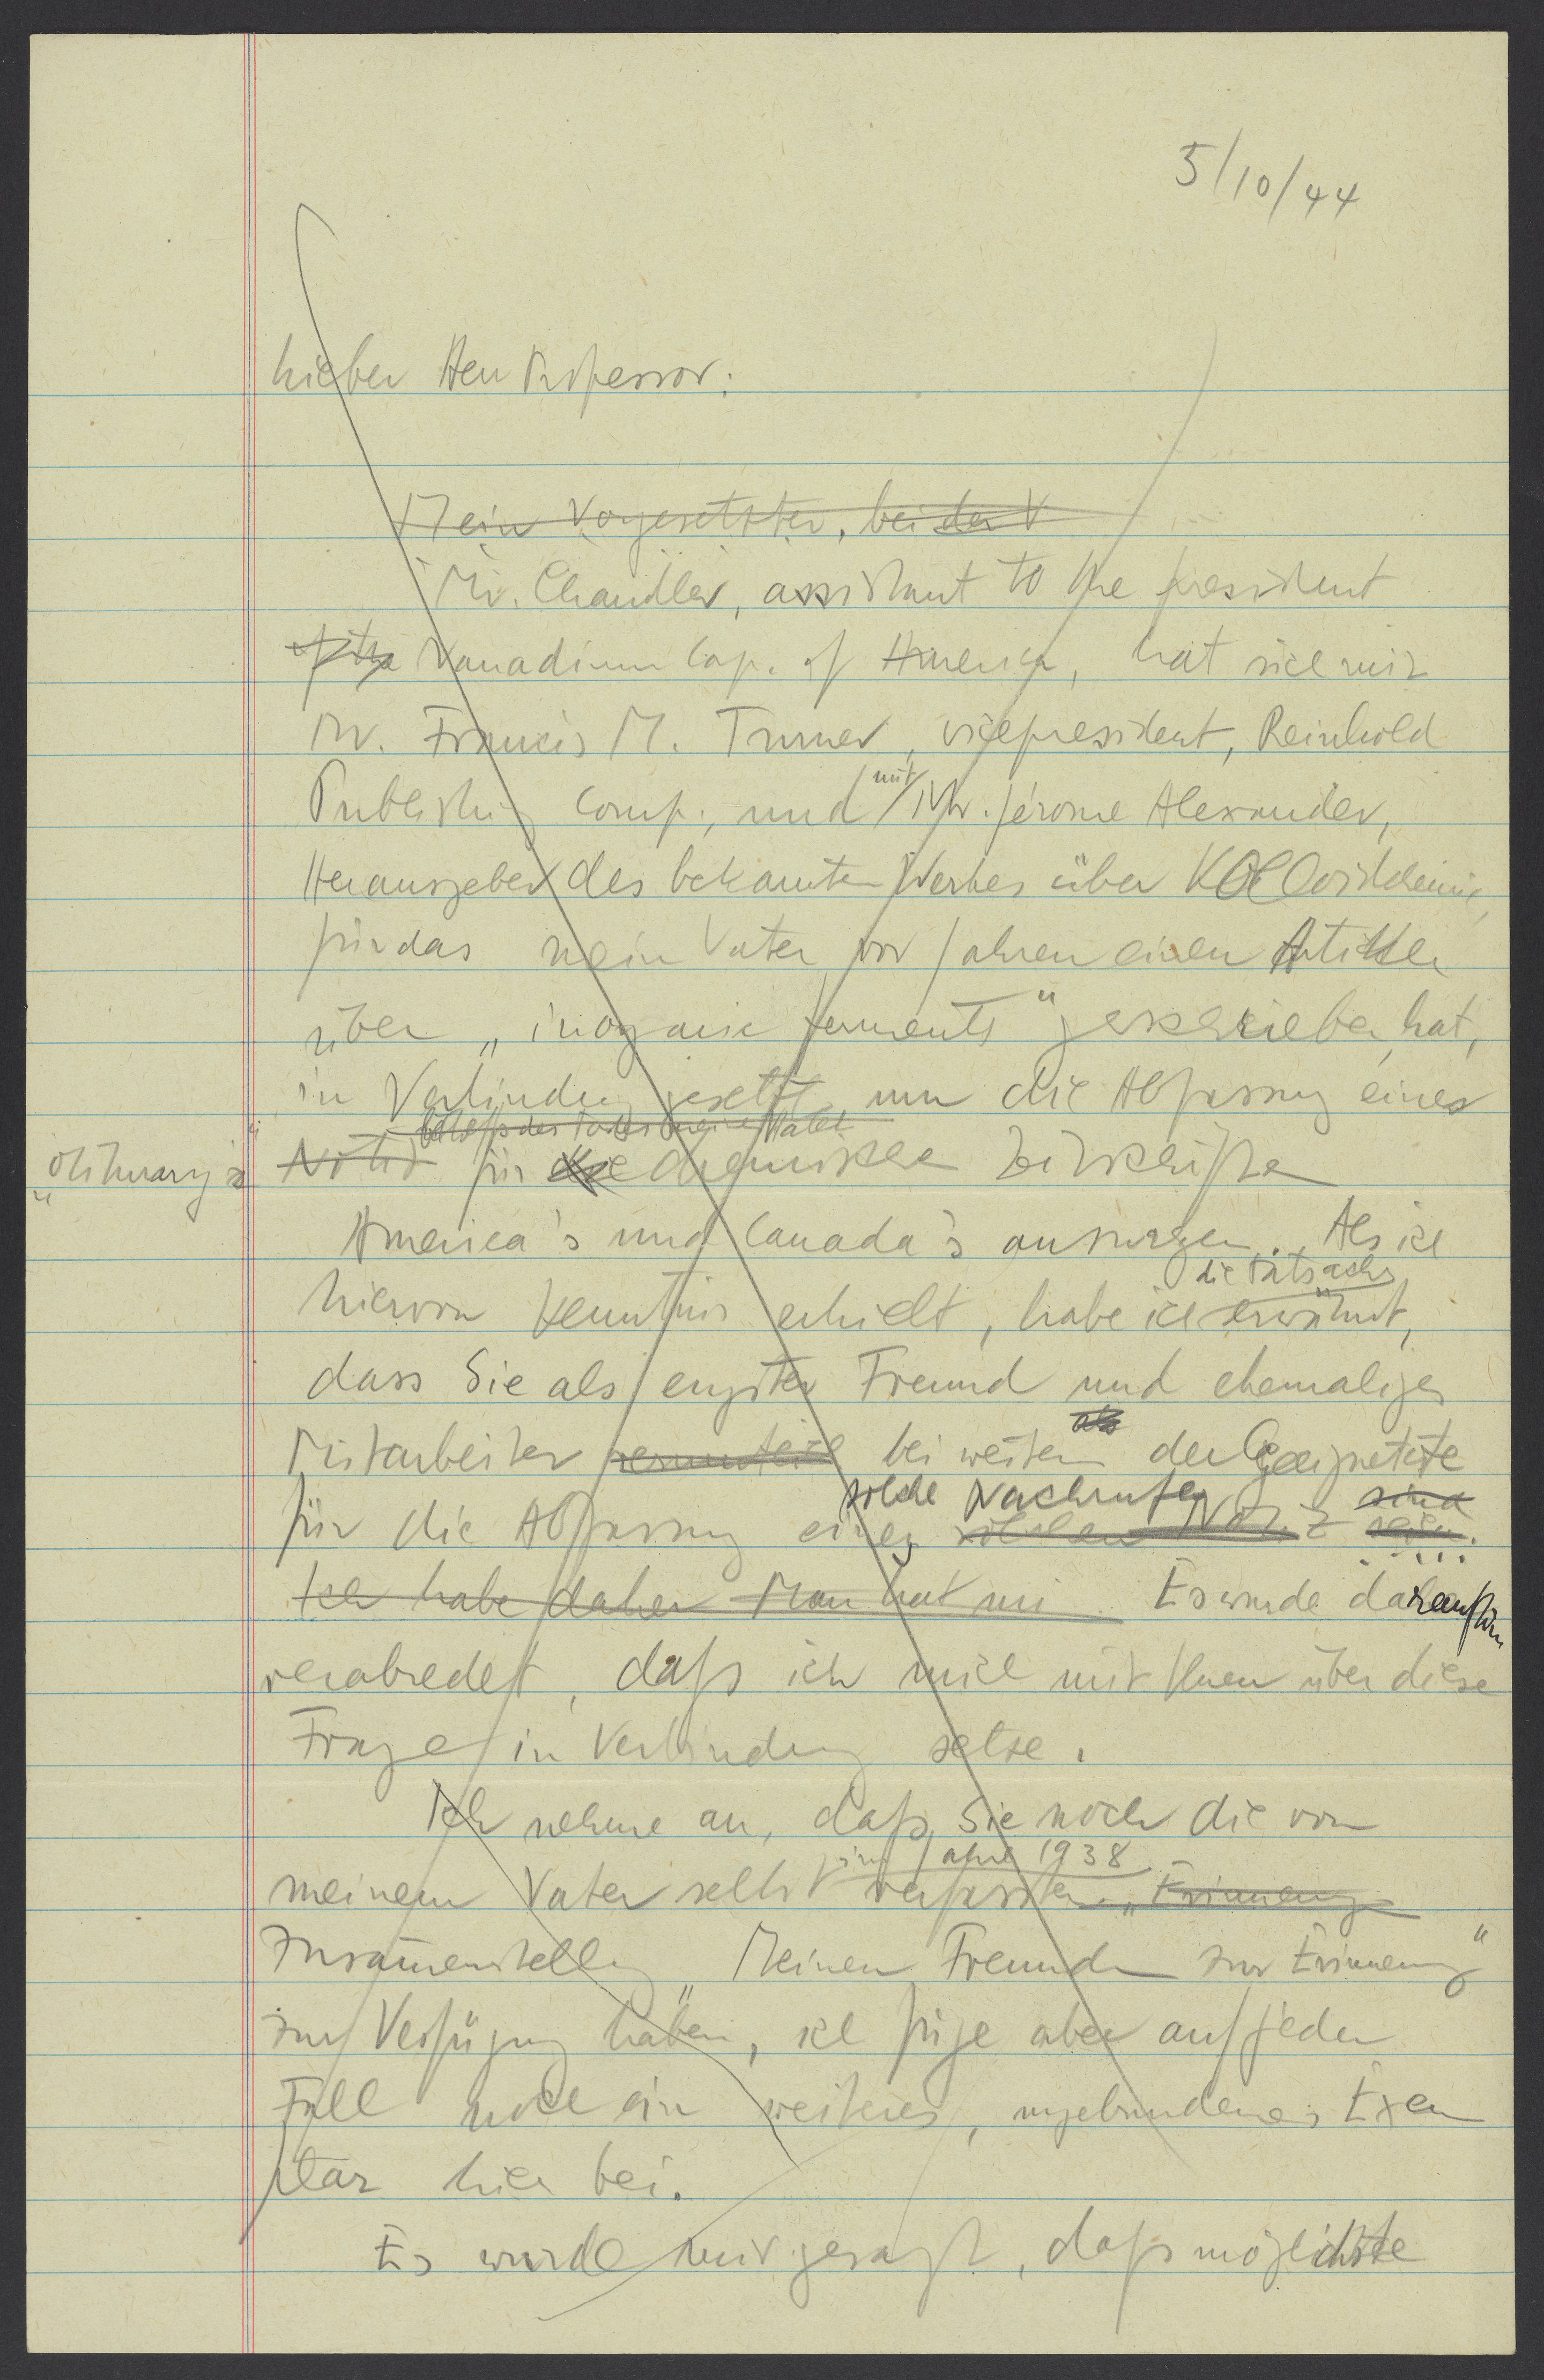 5/10/44
Lieber Herr Professor:
Mein Vorgesetzter, bei der V
Mr. Chandler, assistant to the president
of the Vanadium Corp. of America, hat sich mir
Mr. Francis M. Turner, vicepresident, Reinhold
Publishing Comp., und mit Mr. Jerome Alexander,
Herausgeber des bekannten Werkes über Kolloidchemie,
für das mein Vater vor Jahren einen Artikel
über „inorganic ferments" geschrieben hat,
in Verbindung gesetzt, um die Abfassung eines
betreffs des Todes meines Vaters
„obituary's" Notiz für die chemischen Zeitschriften
America's und Canada's anzuregen. Als ich
die Tatsache
hiervon Kenntnis erhielt, habe ich erwähnt,
dass Sie als engster Freund und ehemaliger
als
Mitarbeiter bei weitem der Geeignetste
solche Nachrufe sind
für die Abfassung einer solchen Notiz seien.
Ich habe daher Man hat mi Es wurde daraufhin
verabredet, daß ich mich mit Ihnen über diese
Frage in Verbindung setze.
Ich nehme an, daß Sie noch die von
im Jahre 1938
meinem Vater selbst verfasste „Erinnerung
Zusam̄enstellung „Meinen Freunden zur Erinnerung"
zur Verfügung haben, ich füge aber auf jeden
Fall noch ein weiteres, ungebundenes Exem
plar hier bei.
Es wurde mir gesagt, daß möglichste